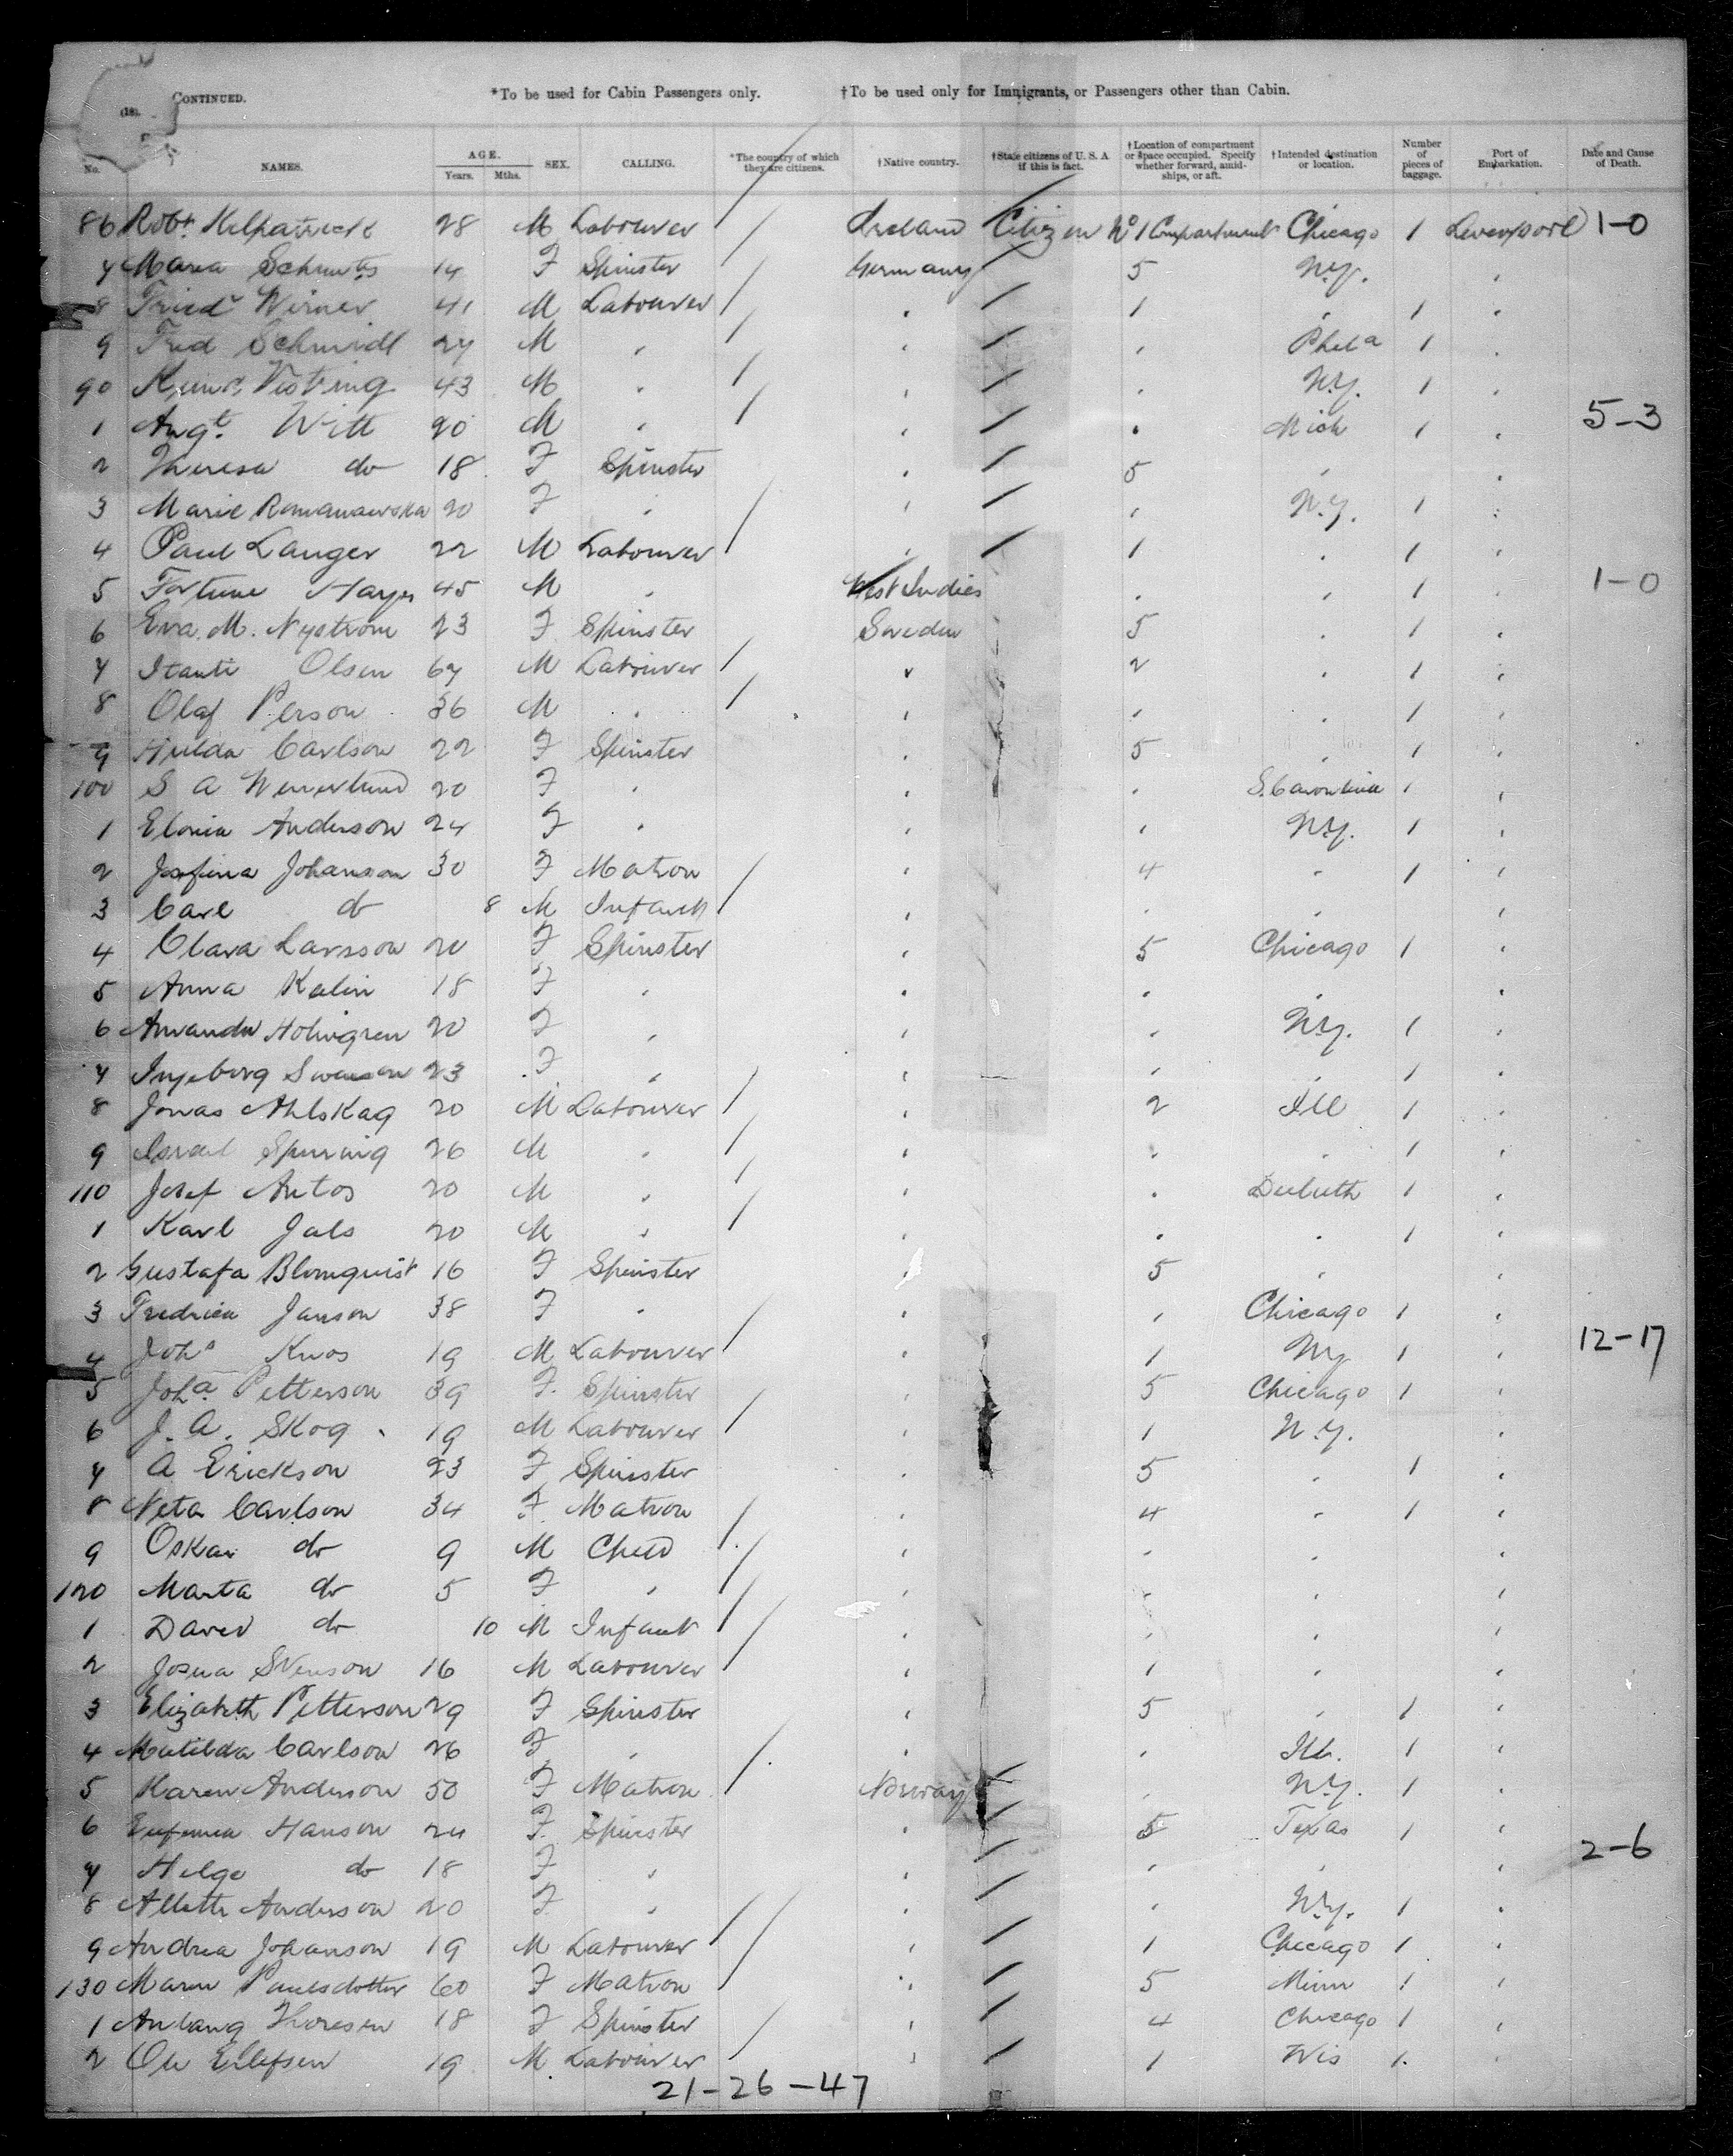 CONTINUED. *To be used for Cabin Passengers only. †To be used only for Immigrants, or Passengers other than Cabin.
No. NAMES. AGE. Years. Mths. SEX. CALLING. *The country of which they are citizens. †Native country. †State citizens of U. S. A if this is fact. †Location of compartment or space occupied. Specify whether forward, amidships, or aft. †Intended destination or location. Number of pieces of baggage. Port of Embarkation. Date and Cause of Death.
86 Robt. Kilpatrick 28 M Labourer / Ireland Citizen No 1 Compartment Chicago 1 Liverpool 1-0
7 Maria 14 F Spinster / Germany / 5 N.Y. "
8 Friedr Werner 41 M Labourer / " / 1 " 1 "
9 Fred Schmidt 27 M " / " / " Phila 1 "
90 43 M " / " / " N.Y. 1 "
1 Augt. Witt 20 M " / " / " Mich 1 " 5-3
2 Theresa do 18 F Spinster " / 5 " "
3 Marie Romanawska 20 F " / " / " N.Y. 1 "
4 Paul Langer 22 M Labourer / " / 1 " 1 "
5 Fortune Hayes 45 M " West Indies " " 1 " 1-0
6 Eva. M. Nystrom 23 F Spinster Sweden 5 " 1 "
7 Olsen 67 M Labourer / " 2 " 1 "
8 Olaf Person 36 M " / " " " 1 "
9 Hulda Carlson 22 F Spinster " 5 " 1 "
100 S A 20 F " " " S. Carolina 1 "
1 Anderson 24 F " " " N.Y. 1 "
2 Josefina Johanson 30 F Matron / " 4 " 1 "
3 Carl do 8 M Infant / " " " "
4 Clara Larsson 20 F Spinster " 5 Chicago 1 "
5 Anna Kalin 18 F " " " " "
6 Amanda Holmgren 20 F " " " N.Y. 1 "
7 Ingeborg Swanson 23 F " " " " 1 "
8 Jonas Ahlskag 20 M Labourer / " 2 Ill 1 "
9 Israel 26 M " / " " " 1 "
110 Josef Antos 20 M " / " " Duluth 1 "
1 Karl Jals 20 M " / " " " 1 "
2 Gustafa Blomquist 16 F Spinster " 5 " "
3 Fredrica Janson 38 F " / " " Chicago 1 "
4 Johs Knos 19 M Labourer / " 1 N.Y. 1 " 12-17
5 Joha Petterson 39 F Spinster " 5 Chicago 1 "
6 J. A. Skog 19 M Labourer / " 1 N.Y. "
7 A Erickson 23 F Spinster " 5 " 1 "
8 Neta Carlson 34 F Matron / " 4 " 1 "
9 Oskar do 9 M Child / " " " "
120 Marta do 5 F " / " " " "
1 David do 10 M Infant / " " " "
2 Josua Svenson 16 M Labourer / " 1 " "
3 Elizabeth Petterson 29 F Spinster " 5 " 1 "
4 Matilda Carlson 26 F " / " " Ill. 1 "
5 Karen Anderson 50 F Matron / Norway / " N.Y. 1 "
6 Hanson 24 F Spinster " / 5 Texas 1 "
7 Helga do 18 F " " / " " " 2-6
8 Anderson 20 F " / " / " N.Y. 1 "
9 Andrea Johanson 19 M Labourer / " / 1 Chicago 1 "
130 Maren Paulsdotter 60 F Matron / " / 5 Minn 1 "
1 Thoresen 18 F Spinster / " / 4 Chicago 1 "
2 Ole Eilefsen 19 M Labourer / " / 1 Wis 1 "
21-26-47